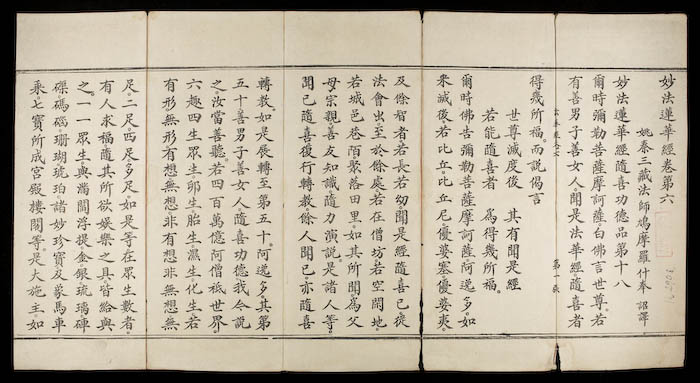 妙法蓮華經卷第六
姚秦三藏法師鳩摩羅什奉 詔譯
妙法蓮華經隨喜功德品第十八
爾時彌勒菩薩摩訶薩白佛言世尊。若
有善男子善女人。聞是法華經。隨喜者
第一張
得幾所福而說偈言
世尊滅度後 其有聞是經
若能隨喜者 為得幾所福。
爾時佛告彌勒菩薩摩訶薩。阿逸多。如
來滅後若比丘。比丘尼優婆塞優婆夷。
及餘智者若長若幼聞是經隨喜已從
法會出至於餘處若在僧坊若空閑地。
若城邑巷陌聚落田里。如其所聞為父
母宗親善友知識隨力演說。是諸人等。
聞已隨喜復行轉教餘人聞已。亦隨喜
轉教如是展轉至第五十。阿逸多。其第
五十善男子善女人隨喜功德我今說
之。汝當善聽。若四百萬億阿僧祇世界。
六趣四生眾生卵生胎生濕生化生若
有形無形有想無想非有想非無想無
足。二足。四足。多足。如是等在眾生數者。
有人求福隨其所欲娛樂之具皆給與
之。一一眾生與滿閻浮提金銀琉璃硨
磲碼碯。珊瑚琥珀諸妙珍寶及象馬車
乘七寶所成宮殿樓閣等是大施主。如